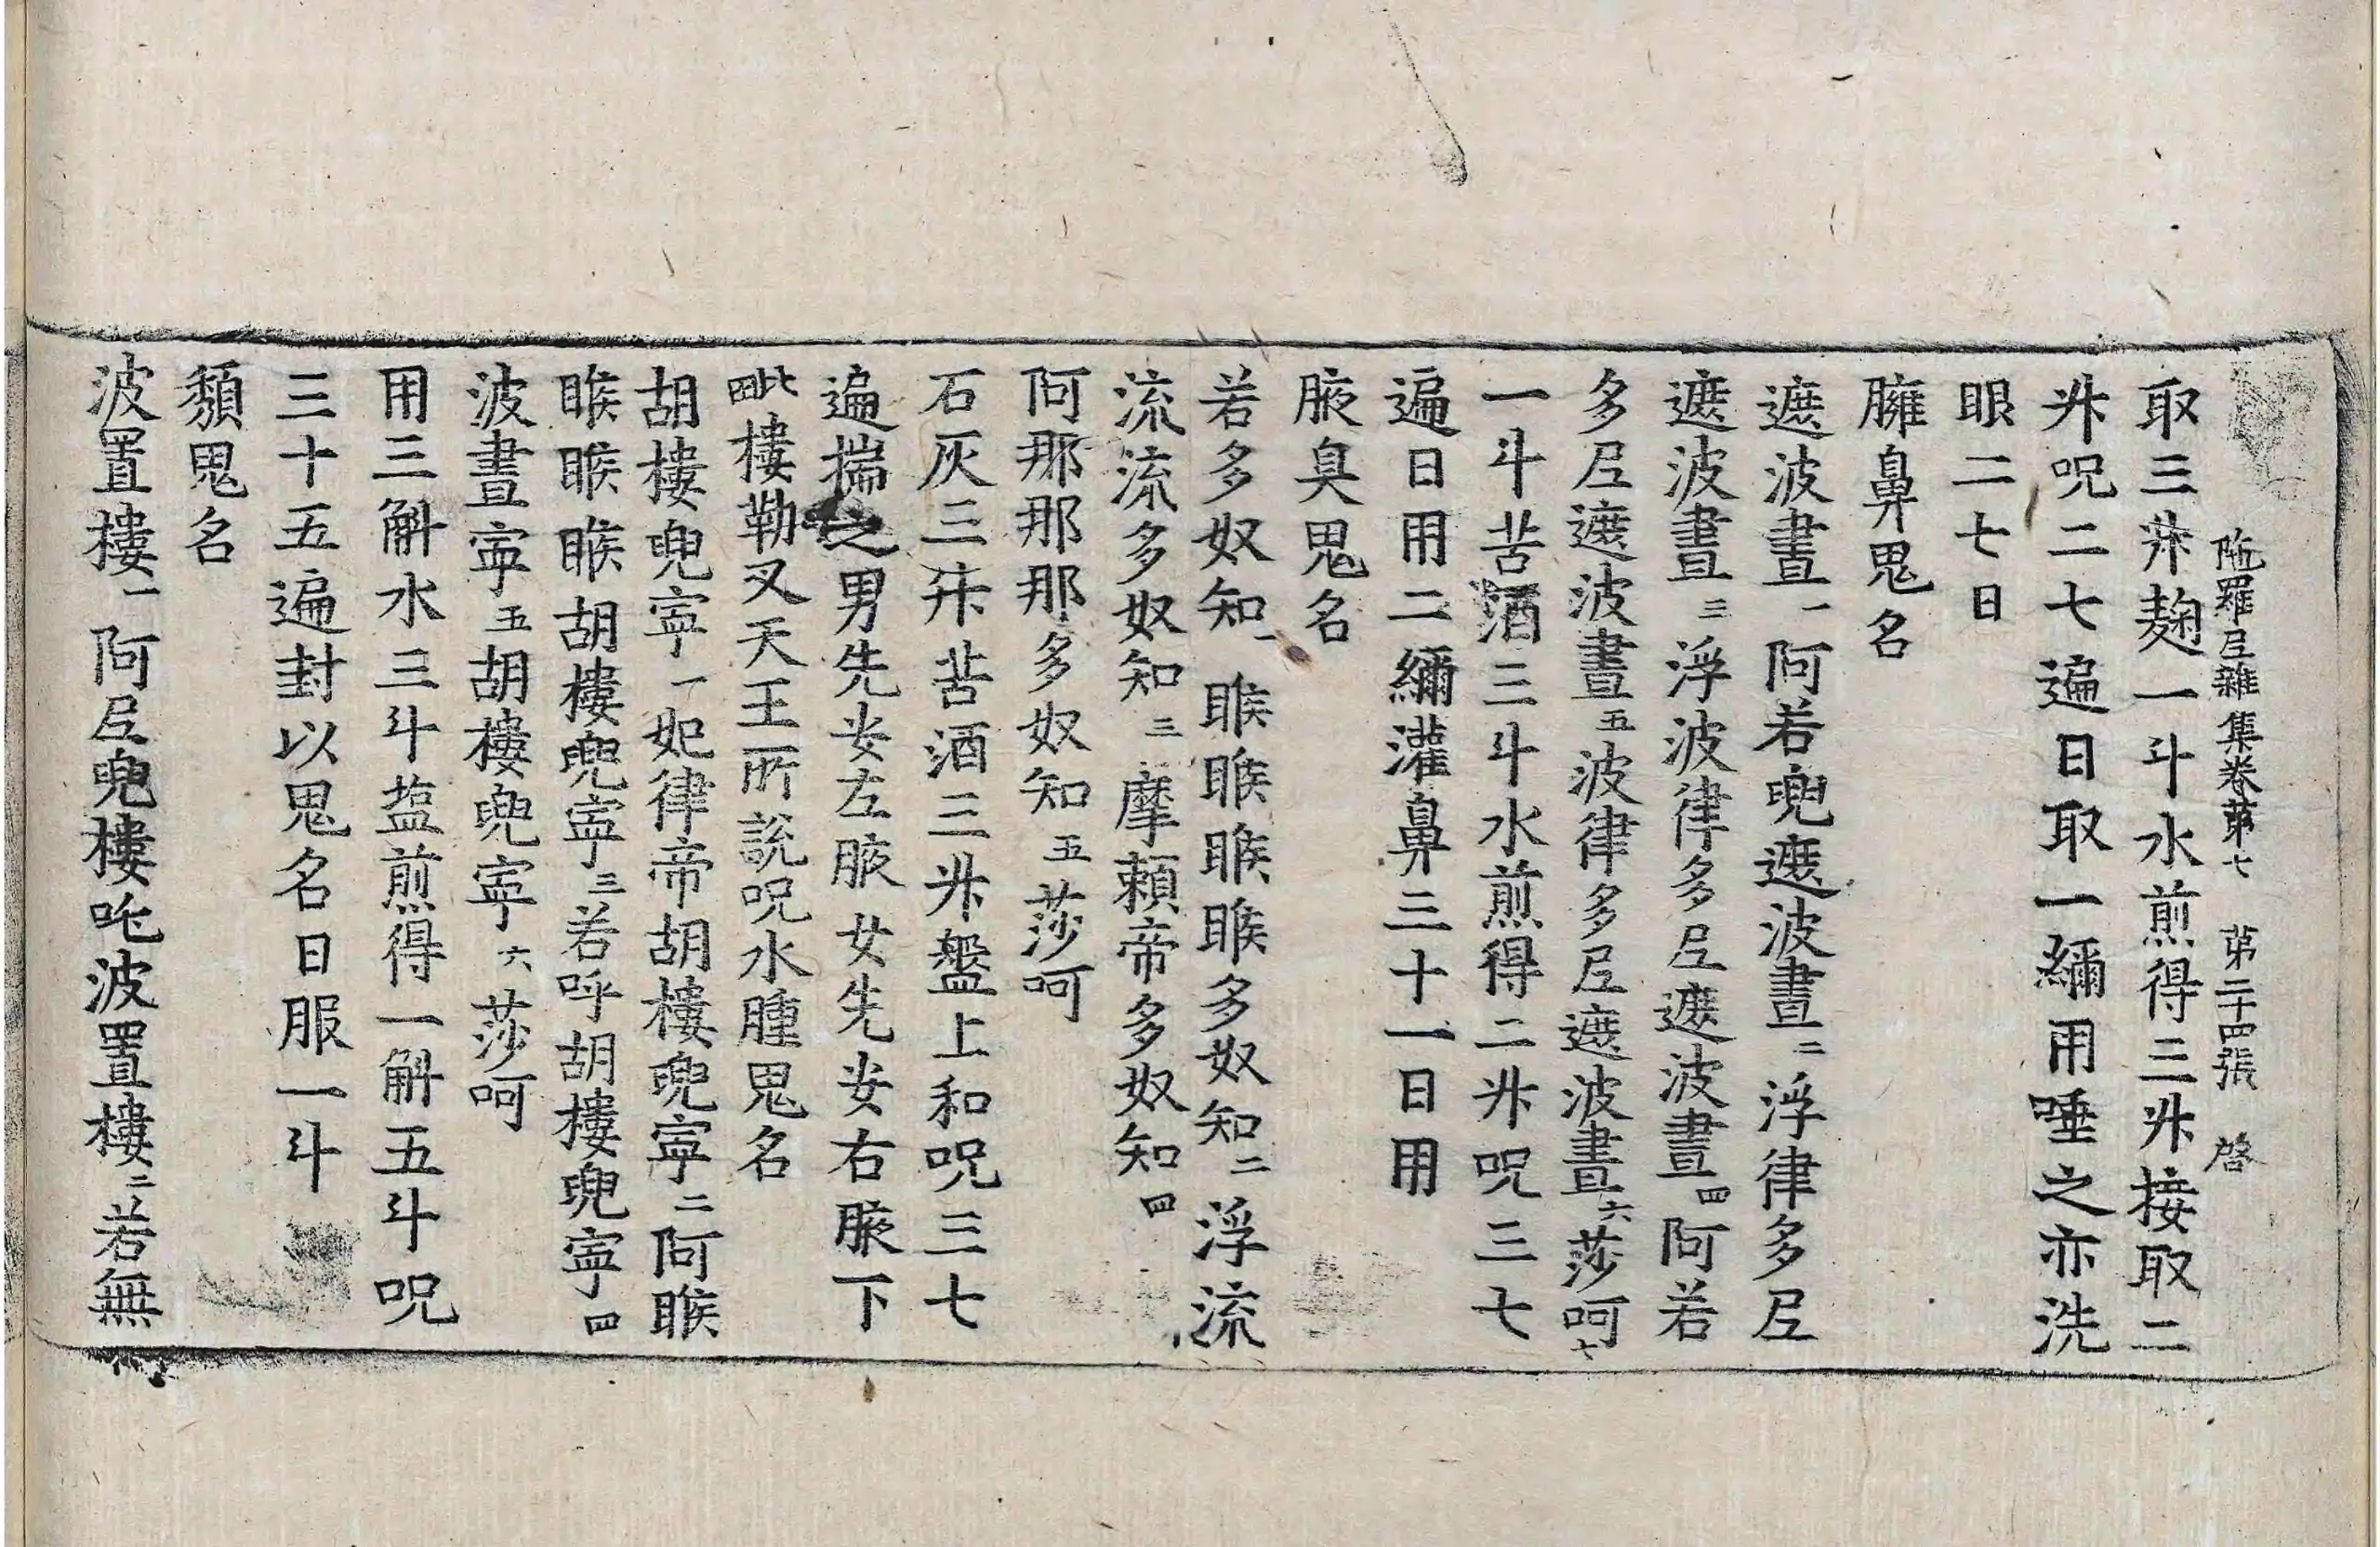 陁羅尼雜集卷第七 第二十四張 啓
取三升麹一斗水煎得三升接取二
升呪二七遍日取一繭用唾之亦洗
眼二七日
臃鼻鬼名
遮波晝一阿若兜遮波晝二浮律多尼
遮波晝三浮波律多尼遮波晝四阿若
多尼遮波晝五波律多尼遮波晝六莎呵七
一斗苦酒三斗水煎得二升呪三七
遍日用二繭灌鼻三十一日用
腋臭鬼名
若多奴知一睺睺睺睺多奴知二浮流
流流多奴知三摩頼帝多奴知四
阿那那那多奴知五莎呵
石灰三升苦酒三升盤上和呪三七
遍揣之男先安左腋女先安右腋下
毗樓勒叉天王所説呪水腫鬼名
胡樓兜寧一妃律帝胡樓兜寧二阿睺
睺睺睺胡樓兜寧三若呼胡樓兜寧四
波晝寧五胡樓兜寧六莎呵
用三斛水三斗塩煎得一斛五斗呪
三十五遍封以鬼名日服一斗
㿗鬼名
波置樓一阿尼兜樓吒波置樓二若無